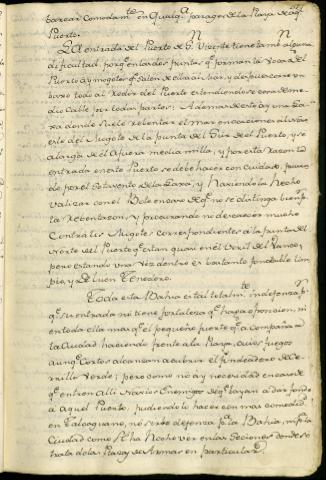 barcar Comodamte en Qualqa parage de la Playa de aql
Puerto.
La entrada del Puerto de Sn. Vicente tiene tambn alguna
dificultad porqe en las dos puntas qe forman la voca del
Puerto ay mogotes qe salen de ella al Mar, y despues corre un
baxo todo al Redor del Puerto extendiendose cosa de me-
dio Cable por todas partes: Ademas de este ay una La-
xa donde suele rebentar el mar en ocaciones al vies
este del Mogote de la punta del Sur de el Puerto, y se
alarga de el afuera media milla, y por esta razon la
entrada en este Puerto se debe hacer con Cuidado,
de por el Sotavento de la Laxa, y haviendolo hecho
valizar con el Bote en caso de qe no se distinga bien pr
la Rebentazon, y procurando no decaer mucho
Contra los Mogotes correspondientes a la punta del
Norte del Puerto qe estan quasi en el Veril del Banco,
pero estando una vez dentro es bastante fondable lim-
pio, y de buen Tenedero.
Toda esta Bahia está totalmte indefenza pr
qe su entrada no tiene fortaleza qe haga oposicion, ni
en toda ella mas qe el pequeño fuerte qe acompaña a
la Ciudad haciendo frente a la Playa, cuios fuegos
aunqe Cortos alcanzan a cubrir el fondeadero de Ce-
rrillo Verde; pero como no ay necesidad en caso de
qe entren alli Navios Enemigos de qe bayan a dar fondo
a aquel Puerto, pudiendolo hacer con mas comodidad
en Talcaguano, no sirve de defenza pa la Bahia, mi pa la
Ciudad como se ha hecho ver en las Seciones donde se
trata de la Plaza de Armas en particular.